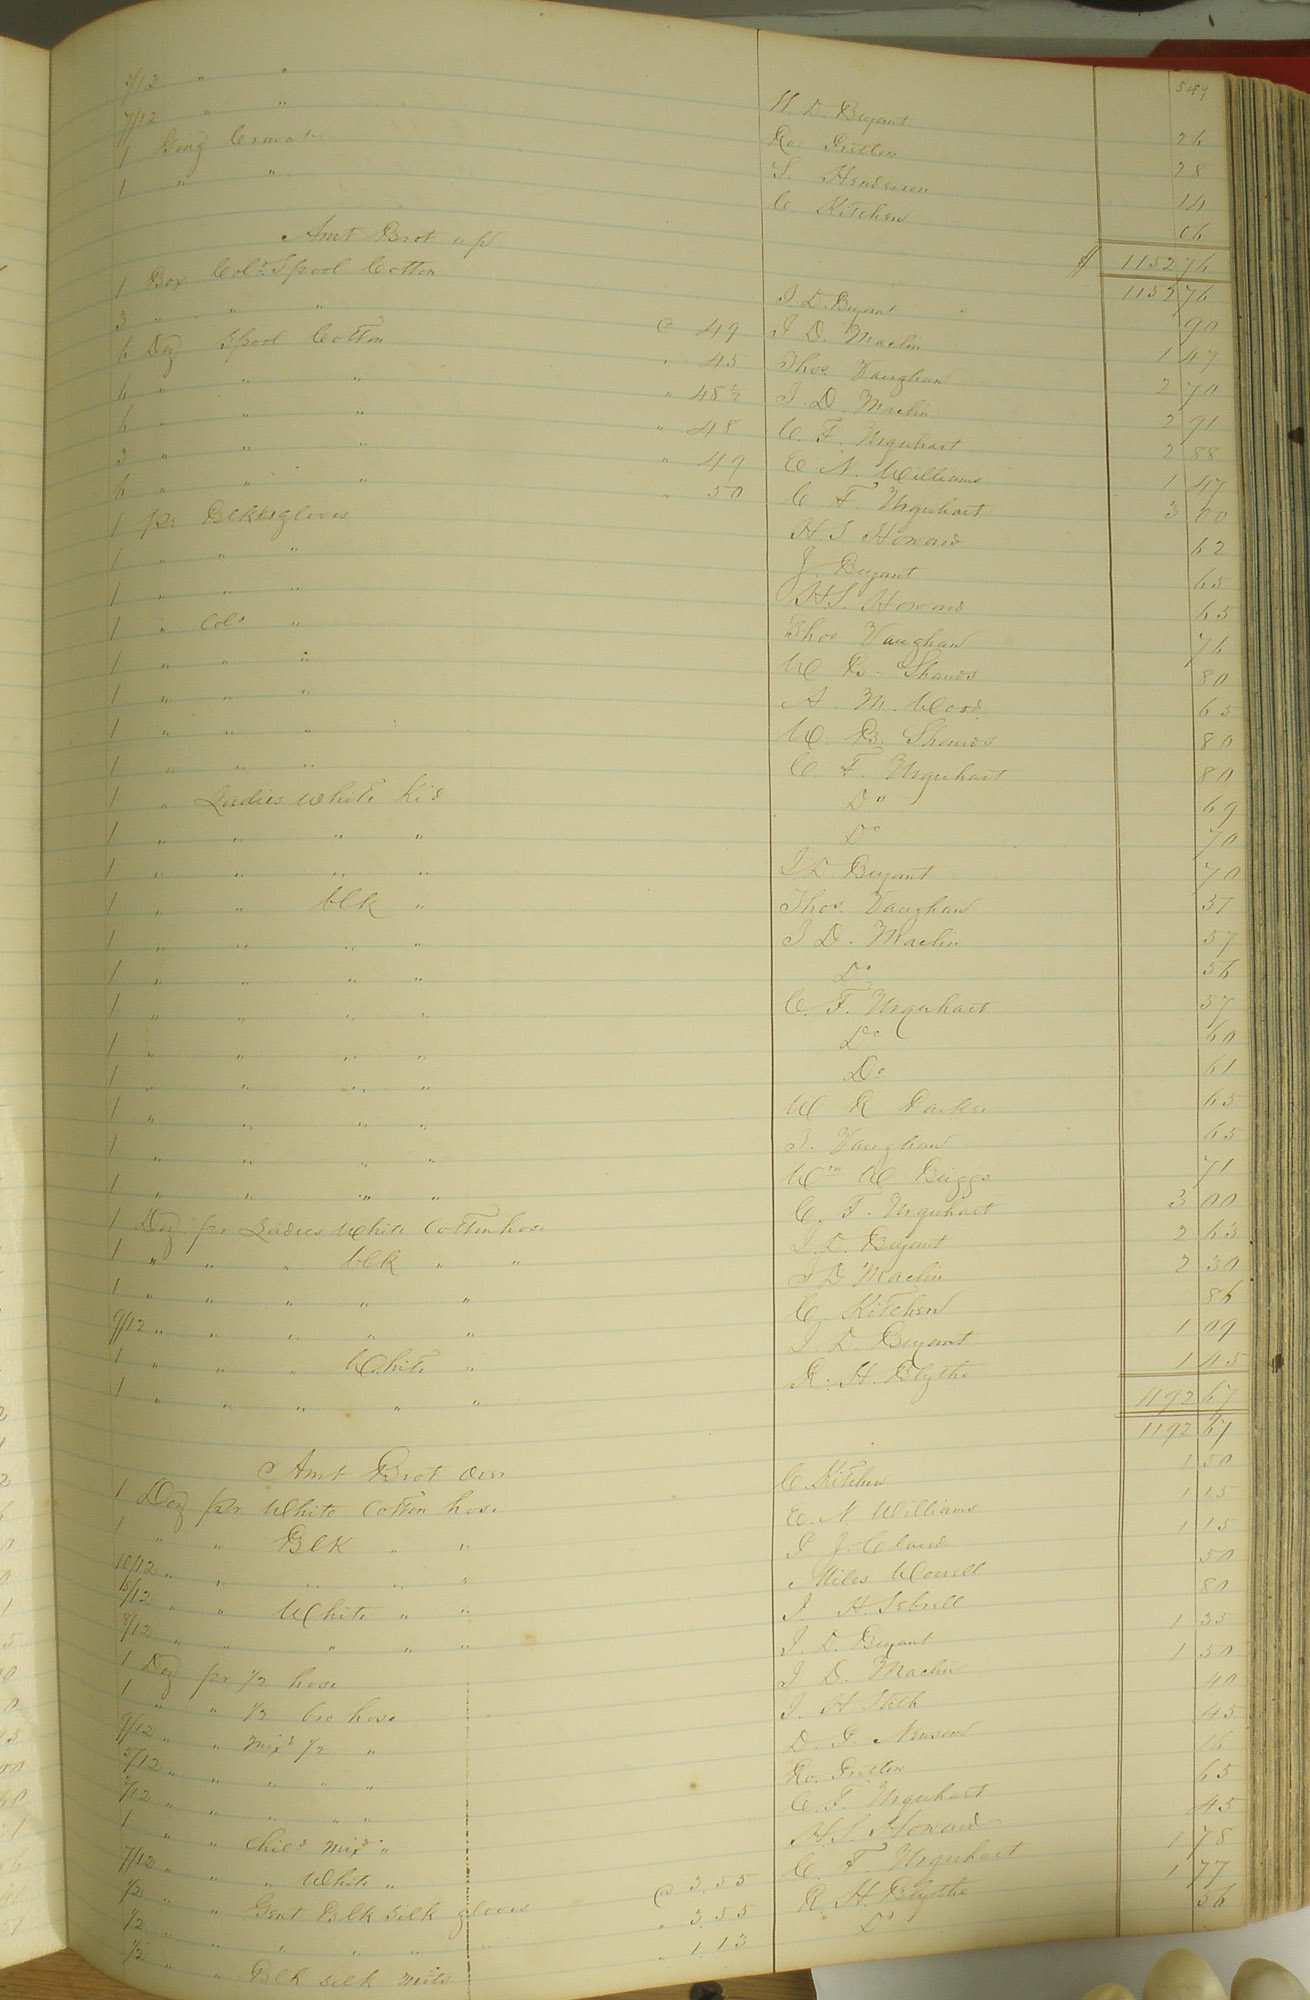 549
3/12 " "
7/12 " " W. D. Bryant 26
1 Ging Cravat Ro. Pretlow 28
1 " " S. Henderson 14
C Kitchen 06
$ 1152 76
Amt Brot up 1152 76
1 Box Cold Spool Cotton J. D. Bryant 90
3 " " " @ 49 J D. Maclin 1 47
6 Doz Spool Cotton " 45 Thos Vaughan 2 70
6 " " " " 48½ J. D. Maclin 2 91
6 " " " " 48 C. F. Urquhart 2 88
3 " " " " 49 E N. Williams 1 47
6 " " " " 50 C F. Urquhart 3 00
1 pr Blk gloves H S Howard 62
1 " " " J. Bryant 65
1 " " " H S. Howard 65
1 " Cold " Thos Vaughan 76
1 " " " W B. Shands 80
1 " " " A. M. Wood 65
1 " " " W. B. Shands 80
1 " " " C. F. Urquhart 80
1 " Ladies White Kid Do 69
1 " " " " Do 70
1 " " " " J. D. Bryant 70
1 " " blk " Thos. Vaughan 57
1 " " " " J D. Maclin 57
1 " " " " Do 56
1 " " " " C. F. Urquhart 57
1 " " " " Do 60
1 " " " " Do 61
1 " " " " W R Parker 65
1 " " " " T. Vaughan 65
1 " " " " Wm W Briggs 71
1 Doz pr Ladies White Cotton hose C. F. Urquhart 3 00
1 " " " blk " " J. D. Bryant 2 63
1 " " " " " J D Maclin 2 30
9/12 " " " " " C. Kitchen 86
1 " " " White " J. D. Bryant 1 09
1 " " " " " R. H. Blythe 1 45
1192 67
Amt Brot Over 1192 67
1 Doz pr White Cotton hose C. Kitchen 1 50
1 " " Blk " " E. N. Williams 1 15
10/12 " " " " " J. J. Claud 1 15
" " White " " Miles Worrell 50
8/12 " " " " " J. H. Sebrell 80
1 Doz pr 1/2 hose J. D. Bryant 1 35
1 " " 1/2 hose J D. Maclin 1 50
9/12 " " Mixd 1/2 " J. H. 40
" " " " " D. J. Newsom 45
" " " " " Ro. Pretlow 16
1 " " Child Mixd " C. F. Urquhart 65
7/12 " " " White " H S. Howard 45
1/2 " " Gent Blk Silk gloves @ 3.55 C. F. Urquhart 1 78
1/2 " " " " " " " 3.55 R. H. Blythe 1 77
1/2 " " Blk silk mits " 1.13 Do 56